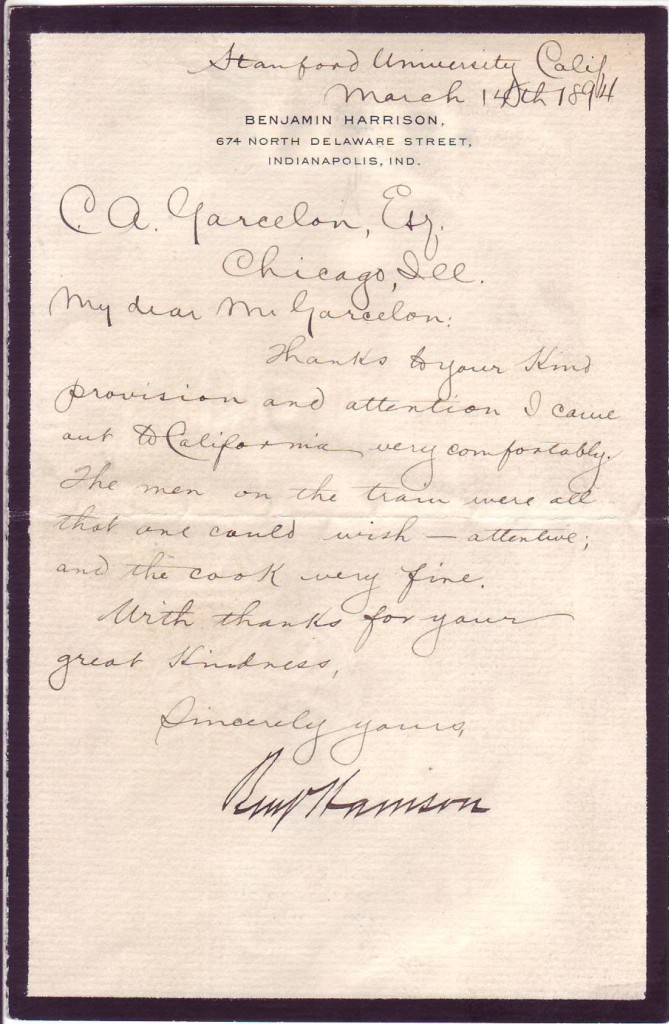 Stanford University Calif,
March 14th 1894
BENJAMIN HARRISON,
674 NORTH DELAWARE STREET,
INDIANAPOLIS, IND.
C. A. Garcelon, Esq.
Chicago, Ill.
My dear Mr Garcelon:
Thanks to your kind
provision and attention I came
out to California very comfortably.
The men on the train were all
that one could wish — attentive;
and the cook very fine.
With thanks for your
great kindness,
Sincerely yours,
Benj Harrison